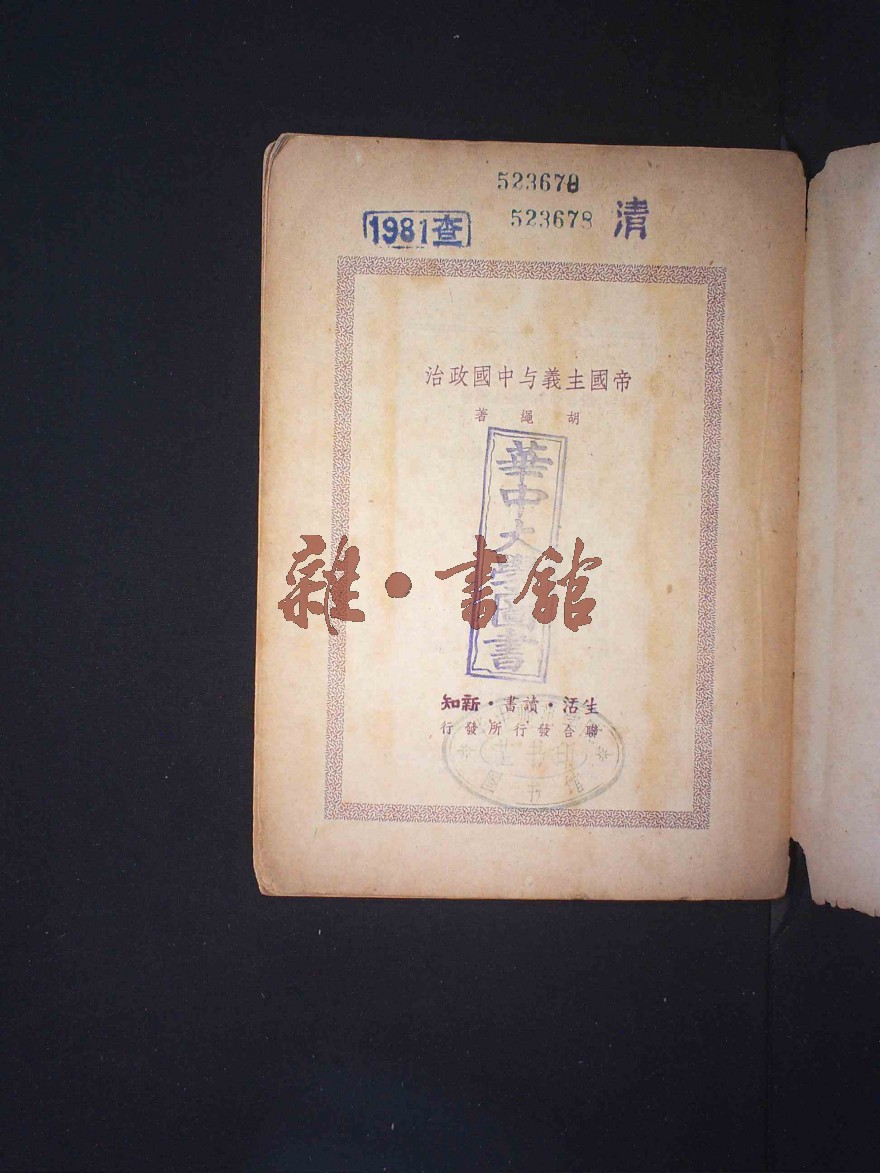 523678
523678 清
1981查
帝國主義与中國政治
胡繩著
華中大學圖書
雜·書館
生活·讀書·新知
聯合發行所發行